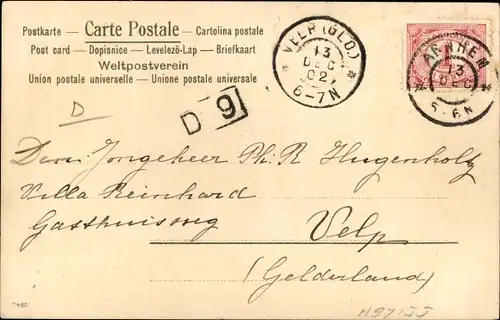 Postkarte – Carte Postale – Cartolina postale
Post card – Dopisnice – Levelező-Lap – Briefkaart
Weltpostverein
Union postale universelle – Unione postale universale
VELP (GLD.)
13
DEC
02
6-7N
ARNHEM
13
DEC
5-6N
D
D 9
Jongeheer Ph. R Hugenholtz
Villa Reinhard
Gasthuisweg
Velp
(Gelderland)